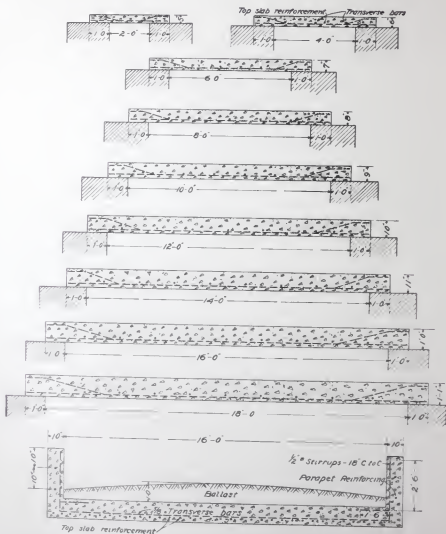 Top slab reinforcement Transverse bars
1'-0" 2'-0" 1'-0" 1'-0" 4'-0" 1'-0"
1'-0" 6'-0" 1'-0" 7"
1'-0" 8'-0" 1'-0" 8"
1'-0" 10'-0" 1'-0" 9"
1'-0" 12'-0" 1'-0" 10"
1'-0" 14'-0" 1'-0" 11"
1'-0" 16'-0" 1'-0" 1'-0"
1'-0" 18'-0" 1'-0" 1'-1"
10" 16'-0" 10"
½" Stirrups-18" C to C
Parapet Reinforcing
2'-6"
Ballast
Transverse bars
Top slab reinforcement